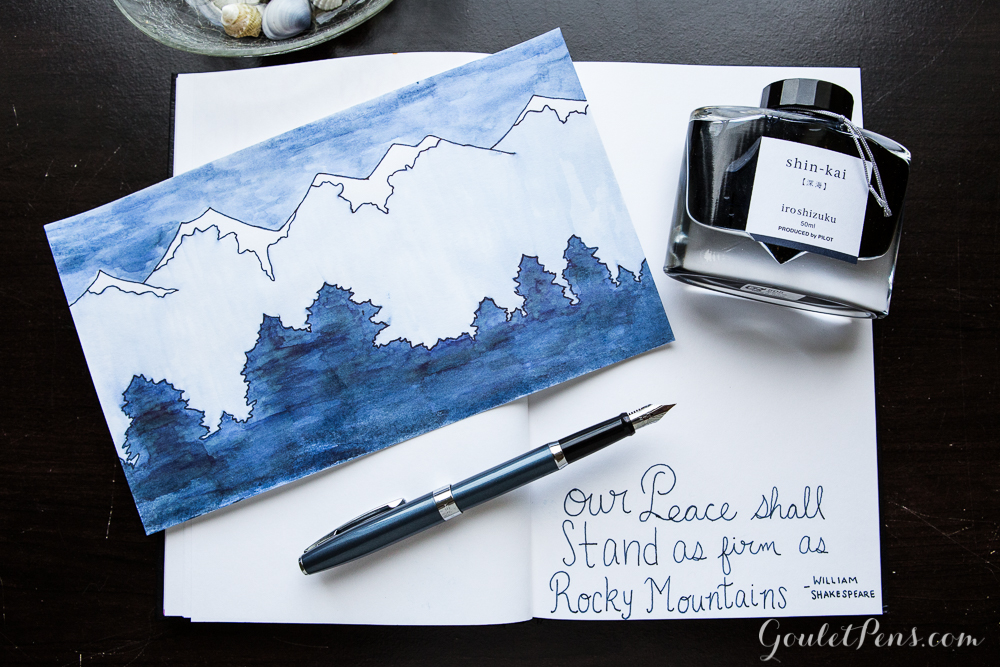 shin-kai
【深海】
iroshizuku
50ml
PRODUCED by PILOT
our Peace shall
Stand as firm as
Rocky Mountains
-WILLIAM
SHAKESPEARE
GouletPens.com